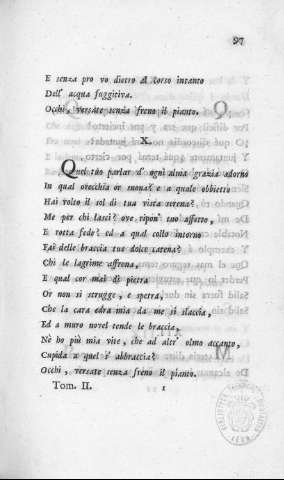 97
E senza pro vo dietro al corso intanto
Dell' acqua fuggitiva.
Occhi, versate senza freno il pianto.
X.
Quel tuo parlar d' ogni alma grazia adorno
In qual orecchia or suona? e a quale obbietto
Hai volto il sol di tua vista serena?
Me per chi lasci? ove ripon' tuo affetto,
E rotta fede? ed a qual collo intorno
Fai delle braccia tue dolce catena?
Chi le lagrime affrena,
E qual cor mai di pietra
Or non si strugge, e spetra,
Che la cara edra mia da me si slaccia,
Ed a muro novel tende le braccia,
Nè ho più mia vite, che ad altr' olmo accanto,
Cupida a quel s' abbraccia?
Occhi, versate senza freno il pianto.
Tom. II.